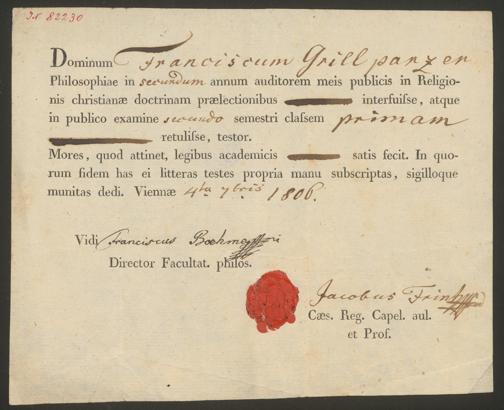 J.N. 82230
Dominum Franciscum Grillparzer
Philosophiae in secundum annum auditorem meis publicis in Religio-
nis christianæ doctrinam prælectionibus interfuiſse, atque
in publico examine secundo semestri claſsem primam
retuliſse, testor.
Mores, quod attinet, legibus academicis satis fecit. In quo-
rum fidem has ei litteras testes propria manu subscriptas, sigilloque
munitas dedi. Viennæ 4ta 7bris 1806.
Vidi Franciscus
Director Facultat. philos.
Jacobus Frint
Cæs. Reg. Capel. aul.
et Prof.